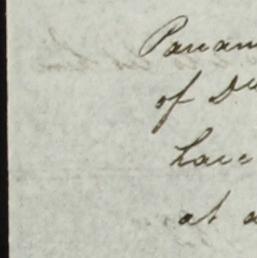 Panam
of De
have
at a